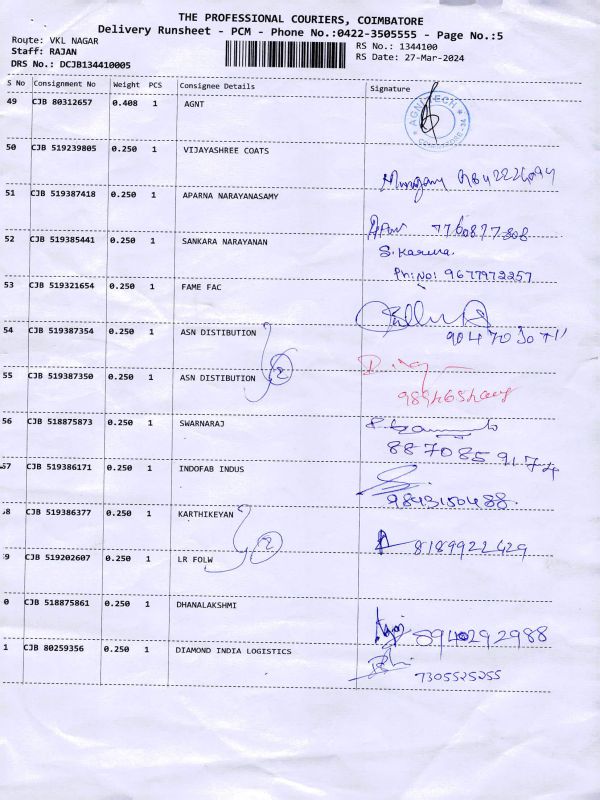 THE PROFESSIONAL COURIERS, COIMBATORE
Delivery Runsheet - PCM - Phone No.:0422-3505555 - Page No.:5
Route: VKL NAGAR
Staff: RAJAN
DRS No.: DCJB134410005
RS No.: 1344100
RS Date: 27-Mar-2024
S No Consignment No Weight PCS Consignee Details Signature
49 CJB 80312657 0.408 1 AGNT
AGNI TECH
50 CJB 519239805 0.250 1 VIJAYASHREE COATS
51 CJB 519387418 0.250 1 APARNA NARAYANASAMY
7760877308
52 CJB 519385441 0.250 1 SANKARA NARAYANAN
S. Karuna.
Ph: No: 9677972257
53 CJB 519321654 0.250 1 FAME FAC
54 CJB 519387354 0.250 1 ASN DISTIBUTION
55 CJB 519387350 0.250 1 ASN DISTIBUTION
2
56 CJB 518875873 0.250 1 SWARNARAJ
8870859174
57 CJB 519386171 0.250 1 INDOFAB INDUS
9843150488.
58 CJB 519386377 0.250 1 KARTHIKEYAN
8189922429
9 CJB 519202607 0.250 1 LR FOLW
2
0 CJB 518875861 0.250 1 DHANALAKSHMI
8940292988
1 CJB 80259356 0.250 1 DIAMOND INDIA LOGISTICS
7305525255